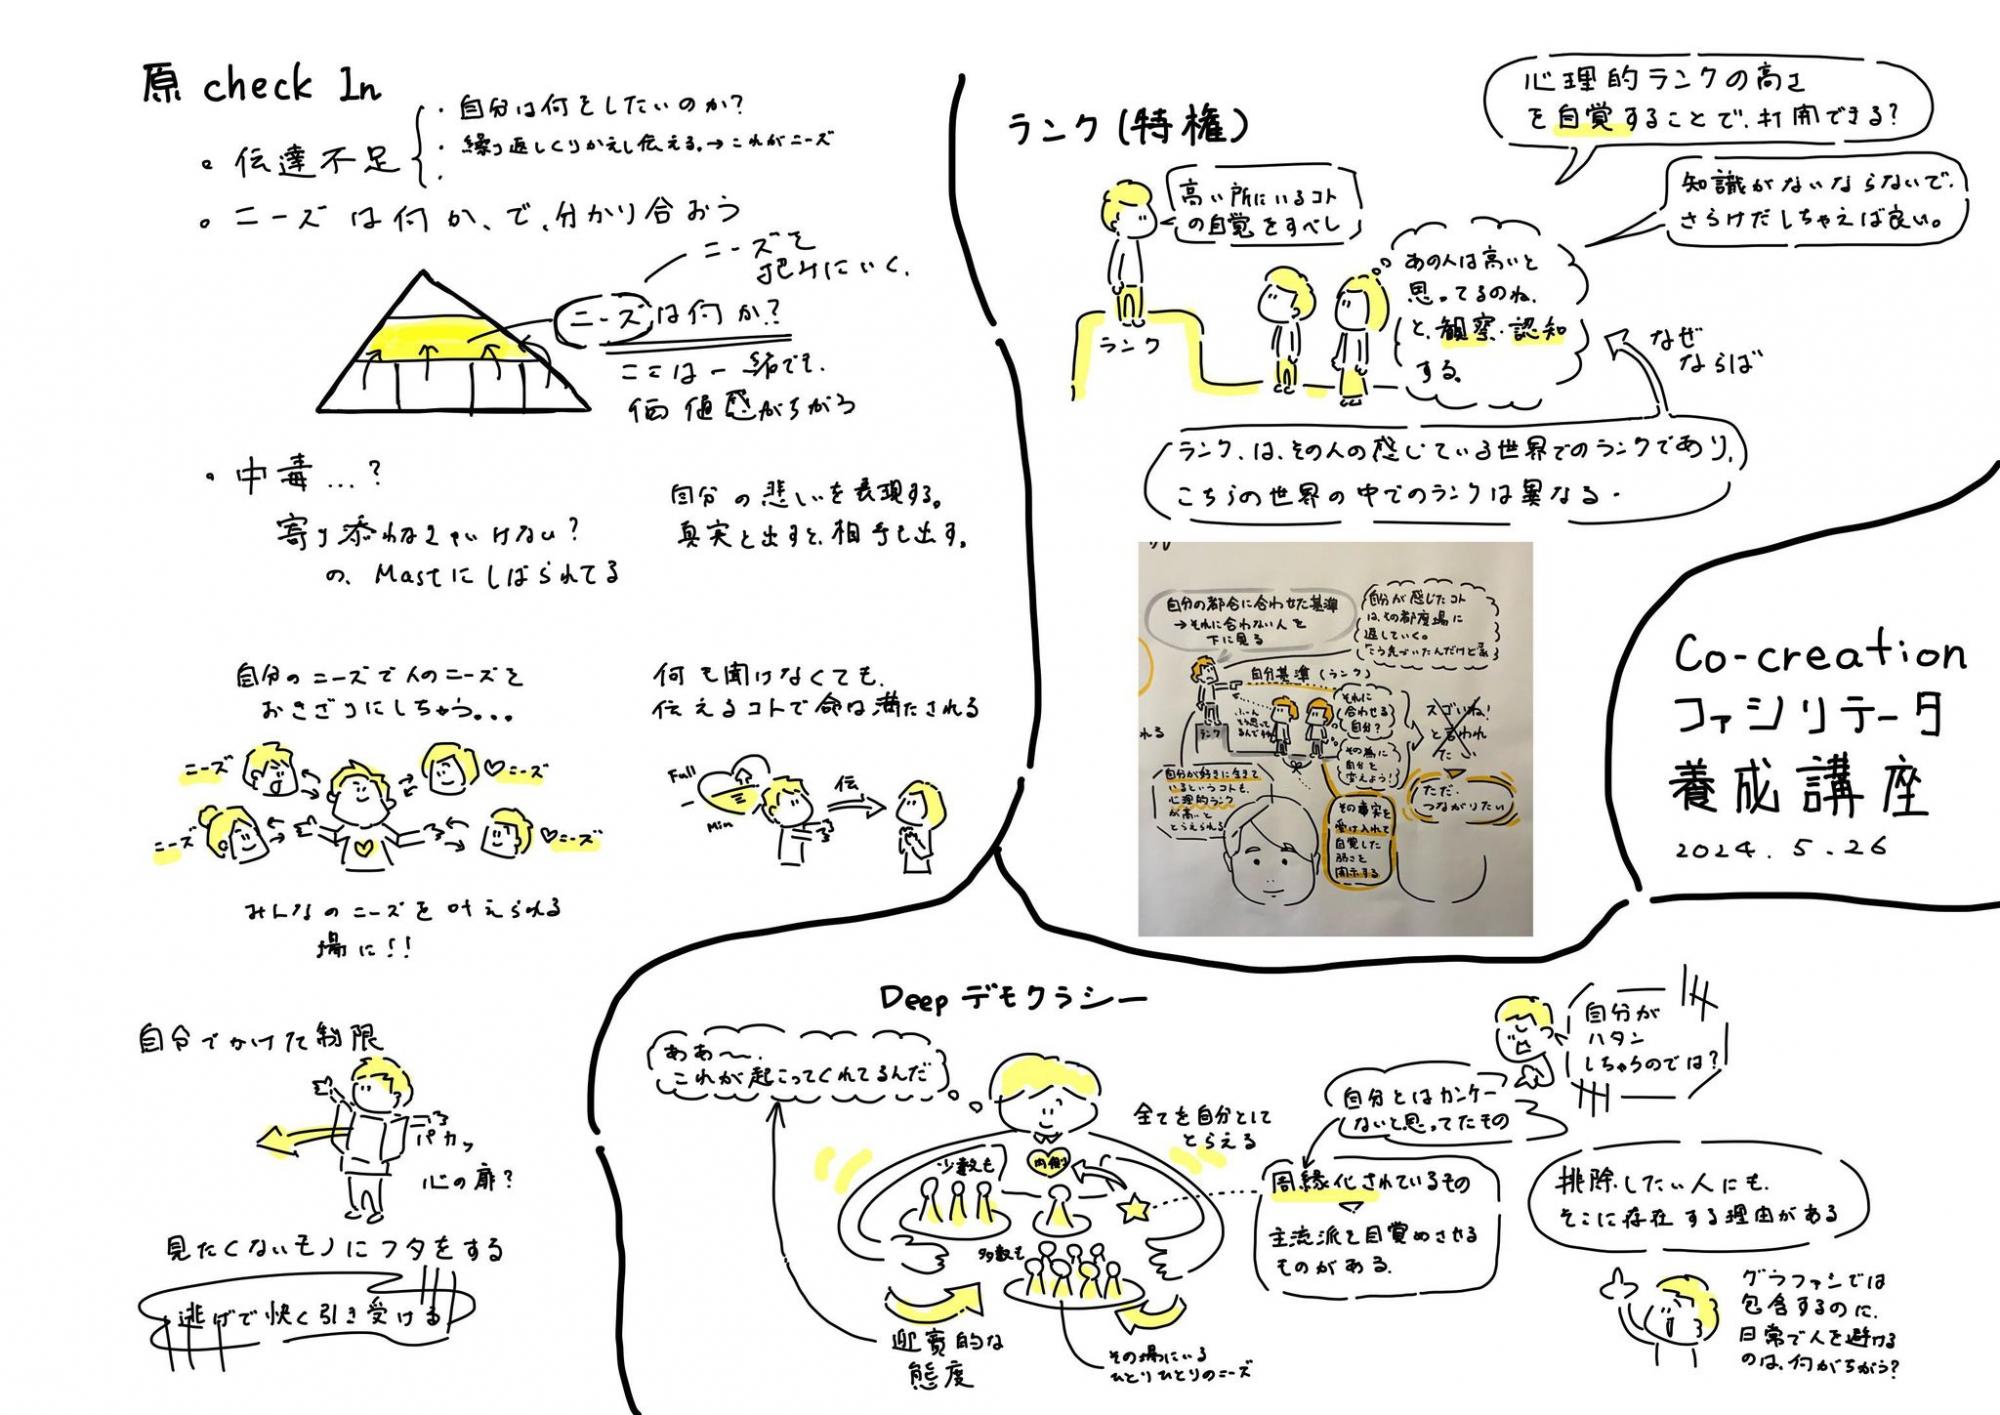 原 check In
・伝達不足
・自分は何をしたいのか?
・繰り返しくりかえし伝える。→これがニーズ
・ニーズは何か、で、分かり合おう
ニーズを
把みにいく。
ニーズは何か?
ここは一緒でも、
価値感がちがう
・中毒…?
寄り添わなきゃいけない?
の、Mastにしばられてる
自分の悲しいを表現する。
真実を出すと、相手も出す。
自分のニーズで人のニーズを
おきざりにしちゃう...
ニーズ
ニーズ
ニーズ
ニーズ
みんなのニーズを叶えられる
場に!!
何も聞けなくても、
伝えるコトで命は満たされる
Full
Min
伝
自分でかけた制限
パカッ
心の扉?
見たくないモノにフタをする
逃げで快く引き受ける
ランク(特権)
高い所にいるコト
の自覚をすべし
ランク
心理的ランクの高さ
を自覚することで、打開できる?
知識がないならないで、
さらけだしちゃえば良い。
あの人は高いと
思ってるのね、
と、観察・認知
する。
なぜ
ならば
ランク、は、その人の感じている世界でのランクであり、
こちらの世界の中でのランクは異なる。
自分の都合に合わせた基準
→それに合わない人を
下に見る
自分が感じたコト
は、その都度場に
返していく。
自分基準(ランク)
ランク
それに
合わせる
自分?
その為に
自分を
変えよう!
スゴいね!
と言われ
たい
ただ、
つながりたい
自分が好きに生きて
いるというコトも、
心理的ランク
が高いと
とらえられる
その事実を
受け入れて
自覚した
弱さを
開示する
Co-creation
ファシリテータ
養成講座
2024.5.26
Deepデモクラシー
ああ〜、
これが起こってくれてるんだ
全てを自分として
とらえる
少数も
内側
多数も
歓迎的な
態度
その場にいる
ひとりひとりのニーズ
自分が
ハタン
しちゃうのでは?
自分とはカンケー
ないと思ってたもの
周縁化されているもの
主流派を目覚めさせる
ものがある。
排除したい人にも、
そこに存在する理由がある
グラファシでは
包含するのに、
日常で人を避ける
のは、何がちがう?